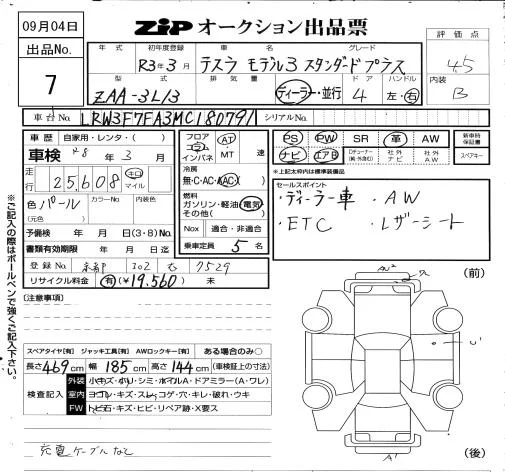 09月04日
ZIP オークション出品票
出品No. 7
評価点 4.5
内装 B
年式 初年度登録 車名 グレード
R3年3月 テスラ モデル3 スタンダードプラス
型式 排気量 ドア ハンドル
ZAA-3L13 ディーラー・並行 4 左・右
車台No. LRW3F7FA3MC180791 シリアルNo.
車歴 自家用・レンタ・( )
車検 R8年3月
走行 25,608 キロ マイル
色 パール (元色) カラーNo. 内装色
予備検 年 月 日(3・8)No.
書類有効期限 年 月 日迄
登録No. 京都 302 7529
リサイクル料金 有(¥19,560) 未
フロア コラム インパネ AT MT 速
冷房 無・C・AC・AAC
燃料 ガソリン・軽油・電気 その他( )
Nox 適合・非適合
乗車定員 5名
PS PW SR 革 AW
ナビ エアB Dチューナー 社外ナビ 社外AW
新車時保証書
スペアキー
*上記太枠内は標準装備品
セールスポイント
・ディーラー車 ・AW
・ETC ・レザーシート
※ご記入の際はボールペンで強くご記入下さい。
[注意事項]
スペアタイヤ[有] ジャッキ工具[有] AWロックキー[有] ある場合のみ○
長さ469cm 幅185cm 高さ144cm (車検証上の寸法)
検査記入
外装 小キズ・小U・シミ・ホイルA・ドアミラー(A・ワレ)
室内 ヨゴレ・キズ・スレ・コゲ・穴・キレ・破れ・ウキ
FW トビ石・キズ・ヒビ・リペア跡・X要ス
充電ケーブルなし
(前)
(後)
A1